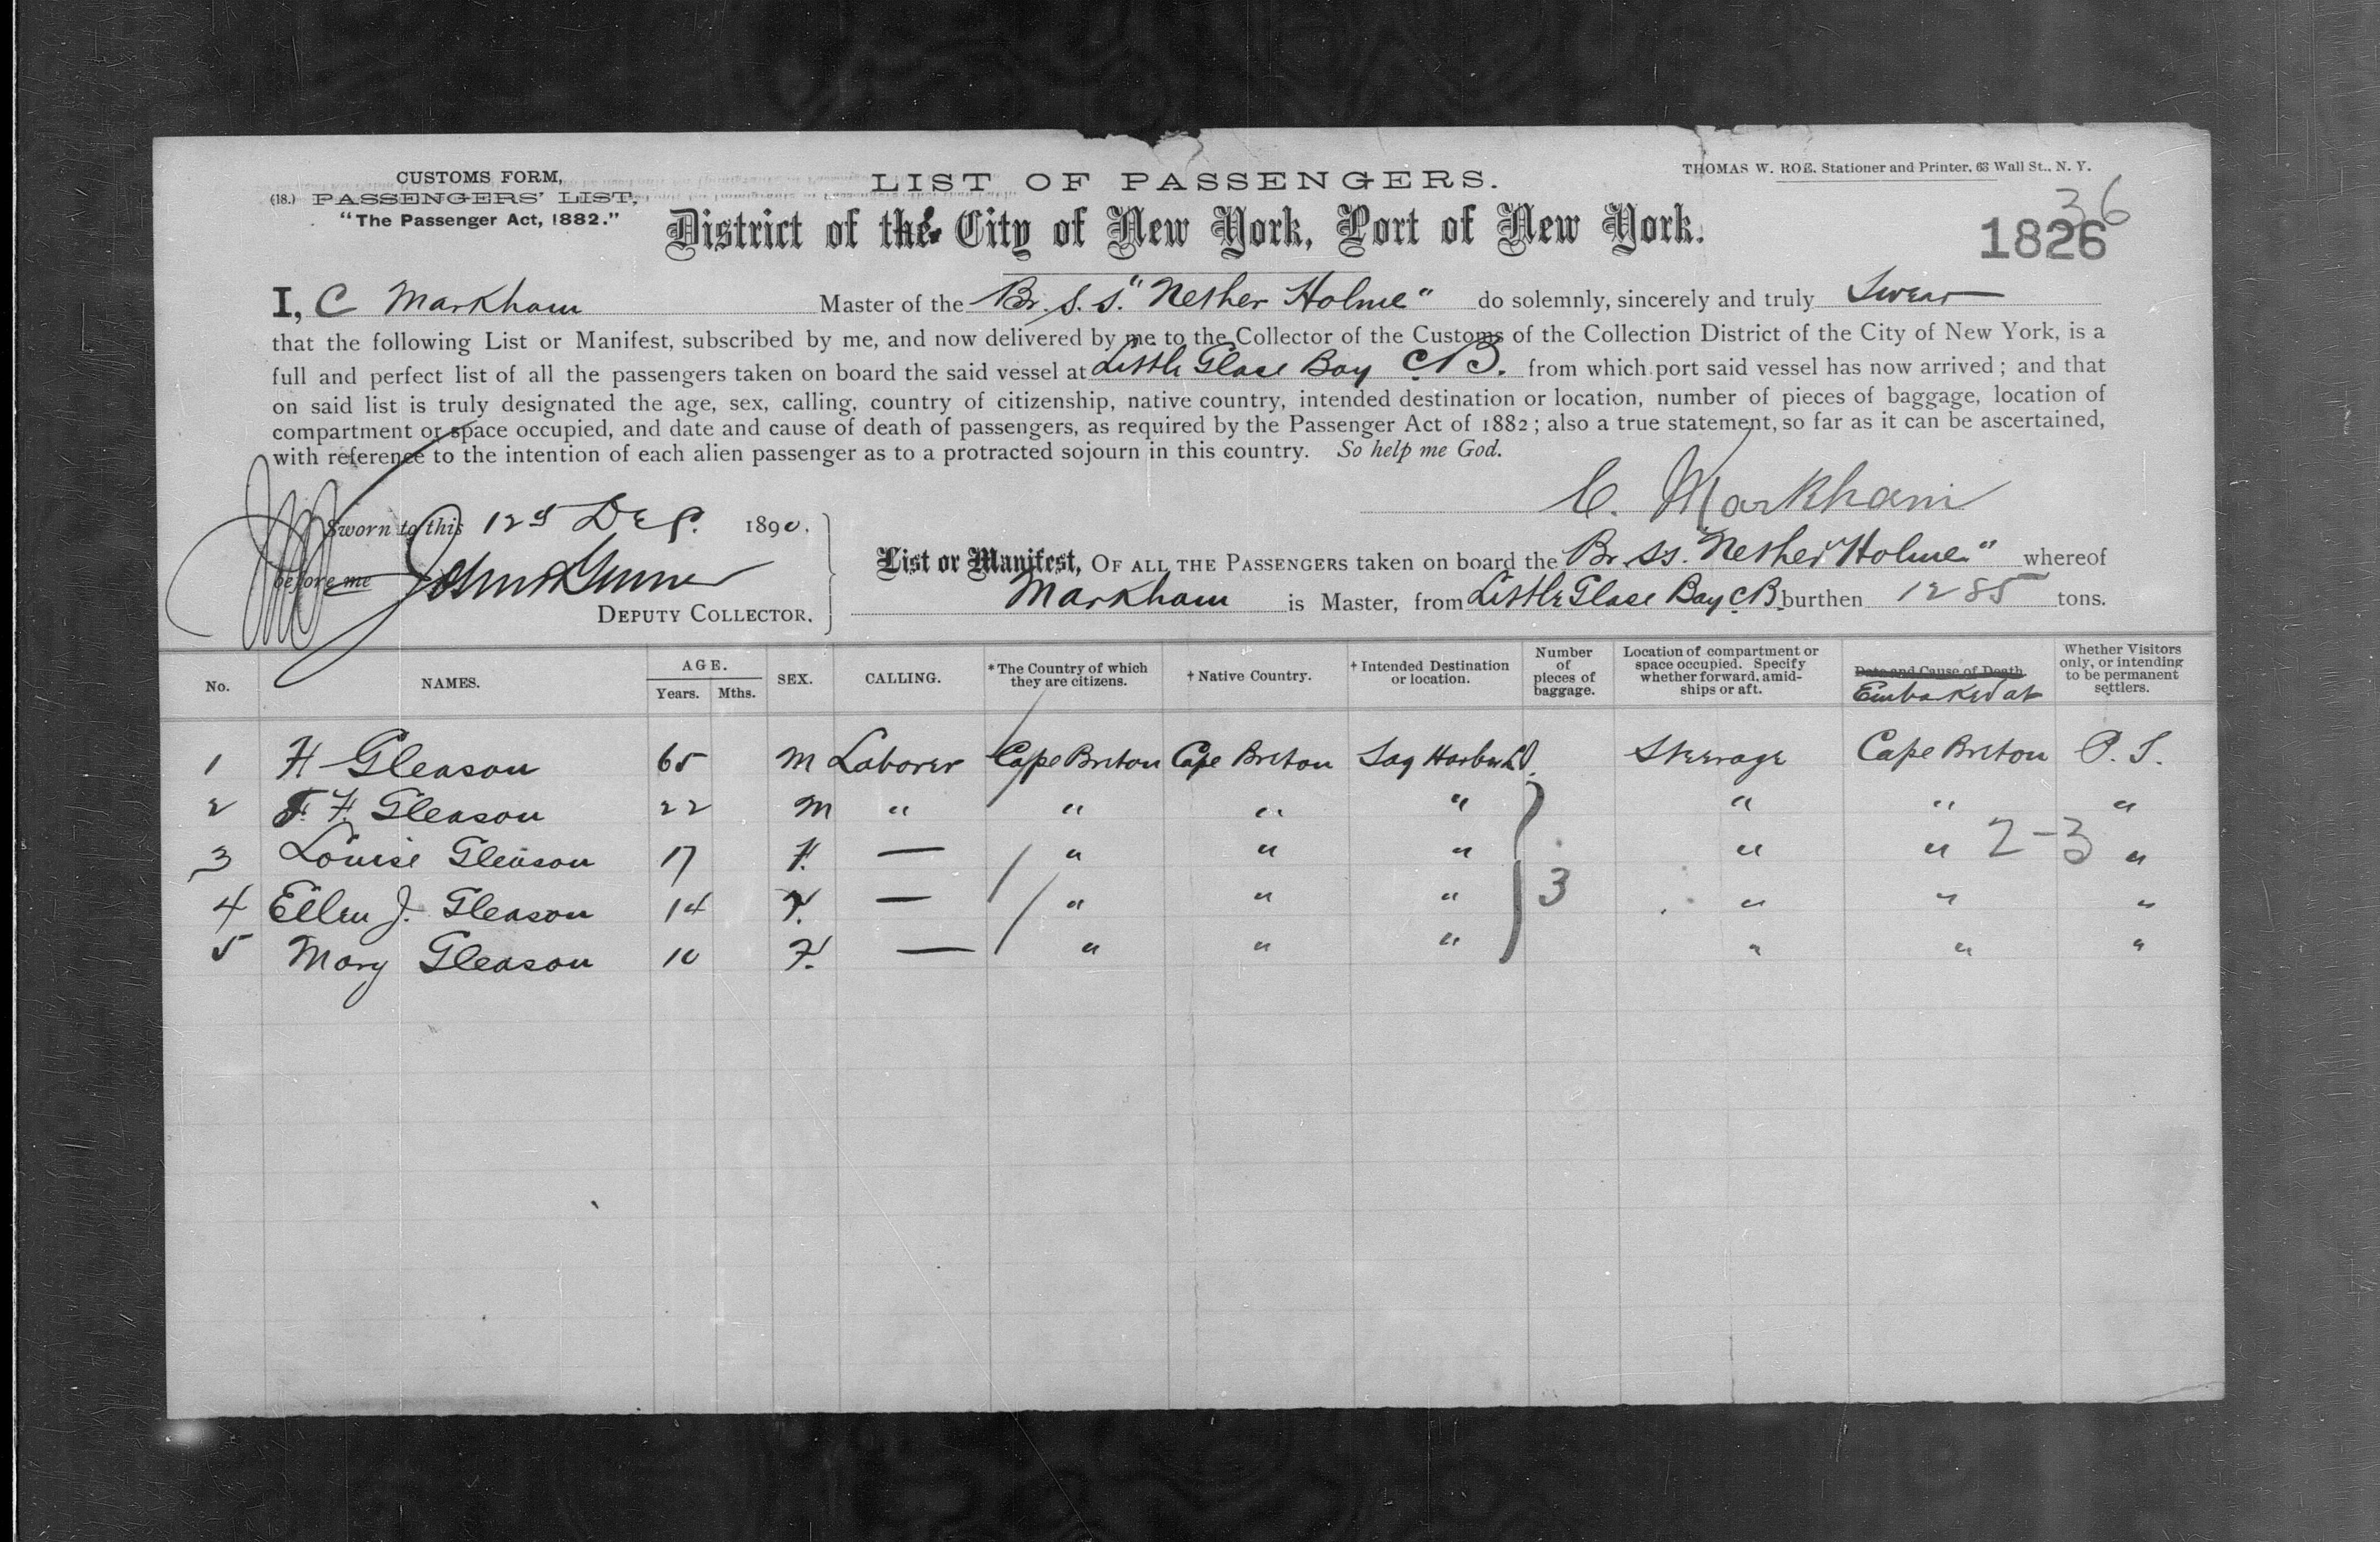 CUSTOMS FORM,
(18.) PASSENGERS' LIST,
"The Passenger Act, 1882."
LIST OF PASSENGERS.
THOMAS W. ROE, Stationer and Printer, 63 Wall St., N. Y.
District of the City of New York, Port of New York.
36
1826
I, C Markham Master of the Br. S. S. "Nether Holme" do solemnly, sincerely and truly Swear
that the following List or Manifest, subscribed by me, and now delivered by me to the Collector of the Customs of the Collection District of the City of New York, is a
full and perfect list of all the passengers taken on board the said vessel at Little Glace Bay C.B. from which port said vessel has now arrived; and that
on said list is truly designated the age, sex, calling, country of citizenship, native country, intended destination or location, number of pieces of baggage, location of
compartment or space occupied, and date and cause of death of passengers, as required by the Passenger Act of 1882; also a true statement, so far as it can be ascertained,
with reference to the intention of each alien passenger as to a protracted sojourn in this country. So help me God.
C. Markham
Sworn to this 12th Dec. 1890.
before me
DEPUTY COLLECTOR.
List or Manifest, OF ALL THE PASSENGERS taken on board the Br. SS. "Nether Holme" whereof
Markham is Master, from Little Glace Bay C.B. burthen 1285 tons.
No. NAMES. AGE. Years. Mths. SEX. CALLING. *The Country of which they are citizens. † Native Country. † Intended Destination or location. Number of pieces of baggage. Location of compartment or space occupied. Specify whether forward, amidships or aft. Date and Cause of Death Embarked at Whether Visitors only, or intending to be permanent settlers.
1 H Gleason 65 M Laborer Cape Breton Cape Breton Sag Harbor L.I. Steerage Cape Breton P. S.
2 F. H. Gleason 22 M " " " " " " "
3 Louise Gleason 17 F. — " " " " " 2-3 "
4 Ellen J. Gleason 14 F. — " " " 3 " " "
5 Mary Gleason 10 F. — " " " " " "